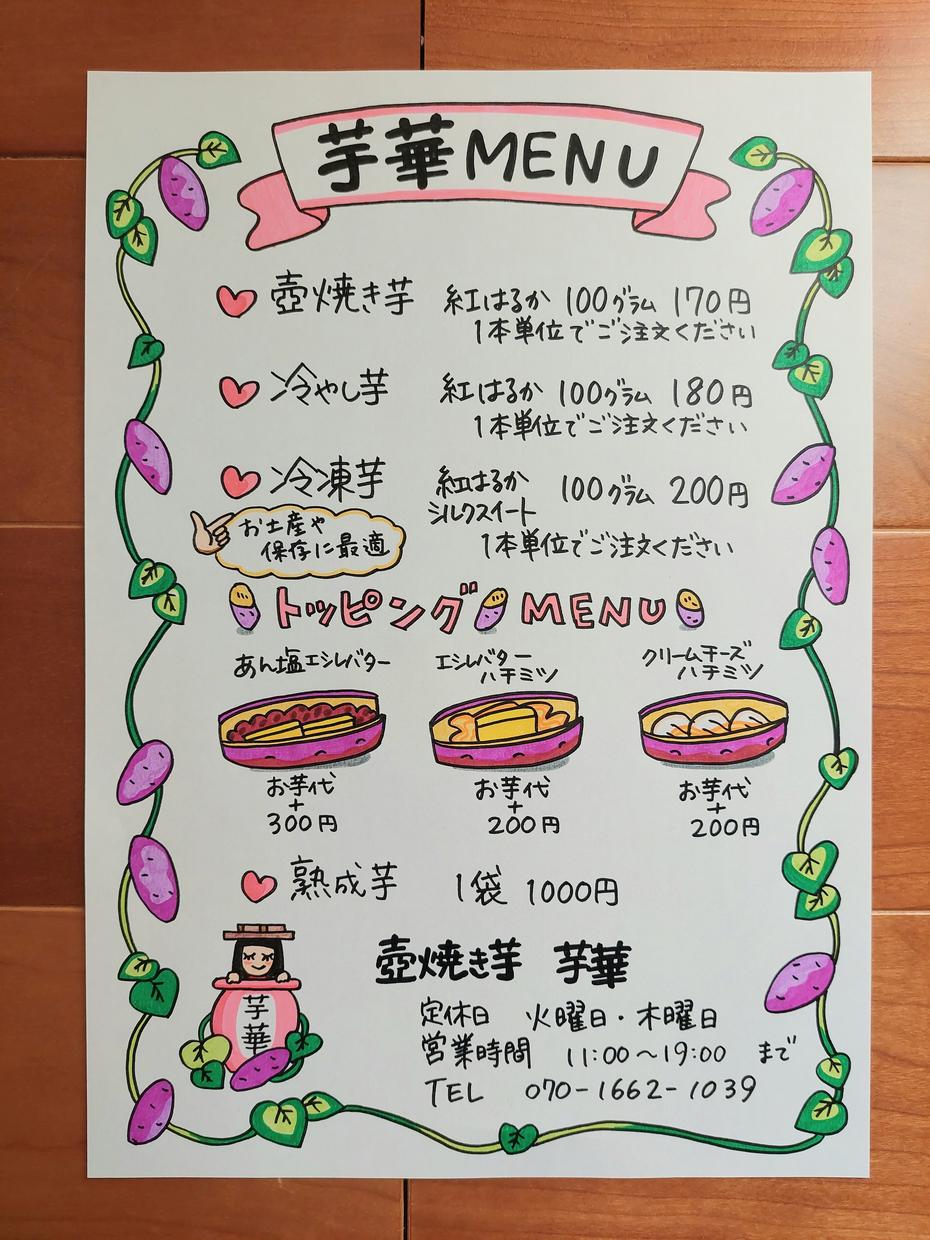 芋華MENU
壺焼き芋 紅はるか 100グラム 170円
1本単位でご注文ください
冷やし芋 紅はるか 100グラム 180円
1本単位でご注文ください
冷凍芋 紅はるか シルクスイート 100グラム 200円
1本単位でご注文ください
お土産や
保存に最適
トッピングMENU
あん塩エシレバター
お芋代
+
300円
エシレバター
ハチミツ
お芋代
+
200円
クリームチーズ
ハチミツ
お芋代
+
200円
熟成芋 1袋 1000円
芋華
壺焼き芋 芋華
定休日 火曜日・木曜日
営業時間 11:00~19:00 まで
TEL 070-1662-1039